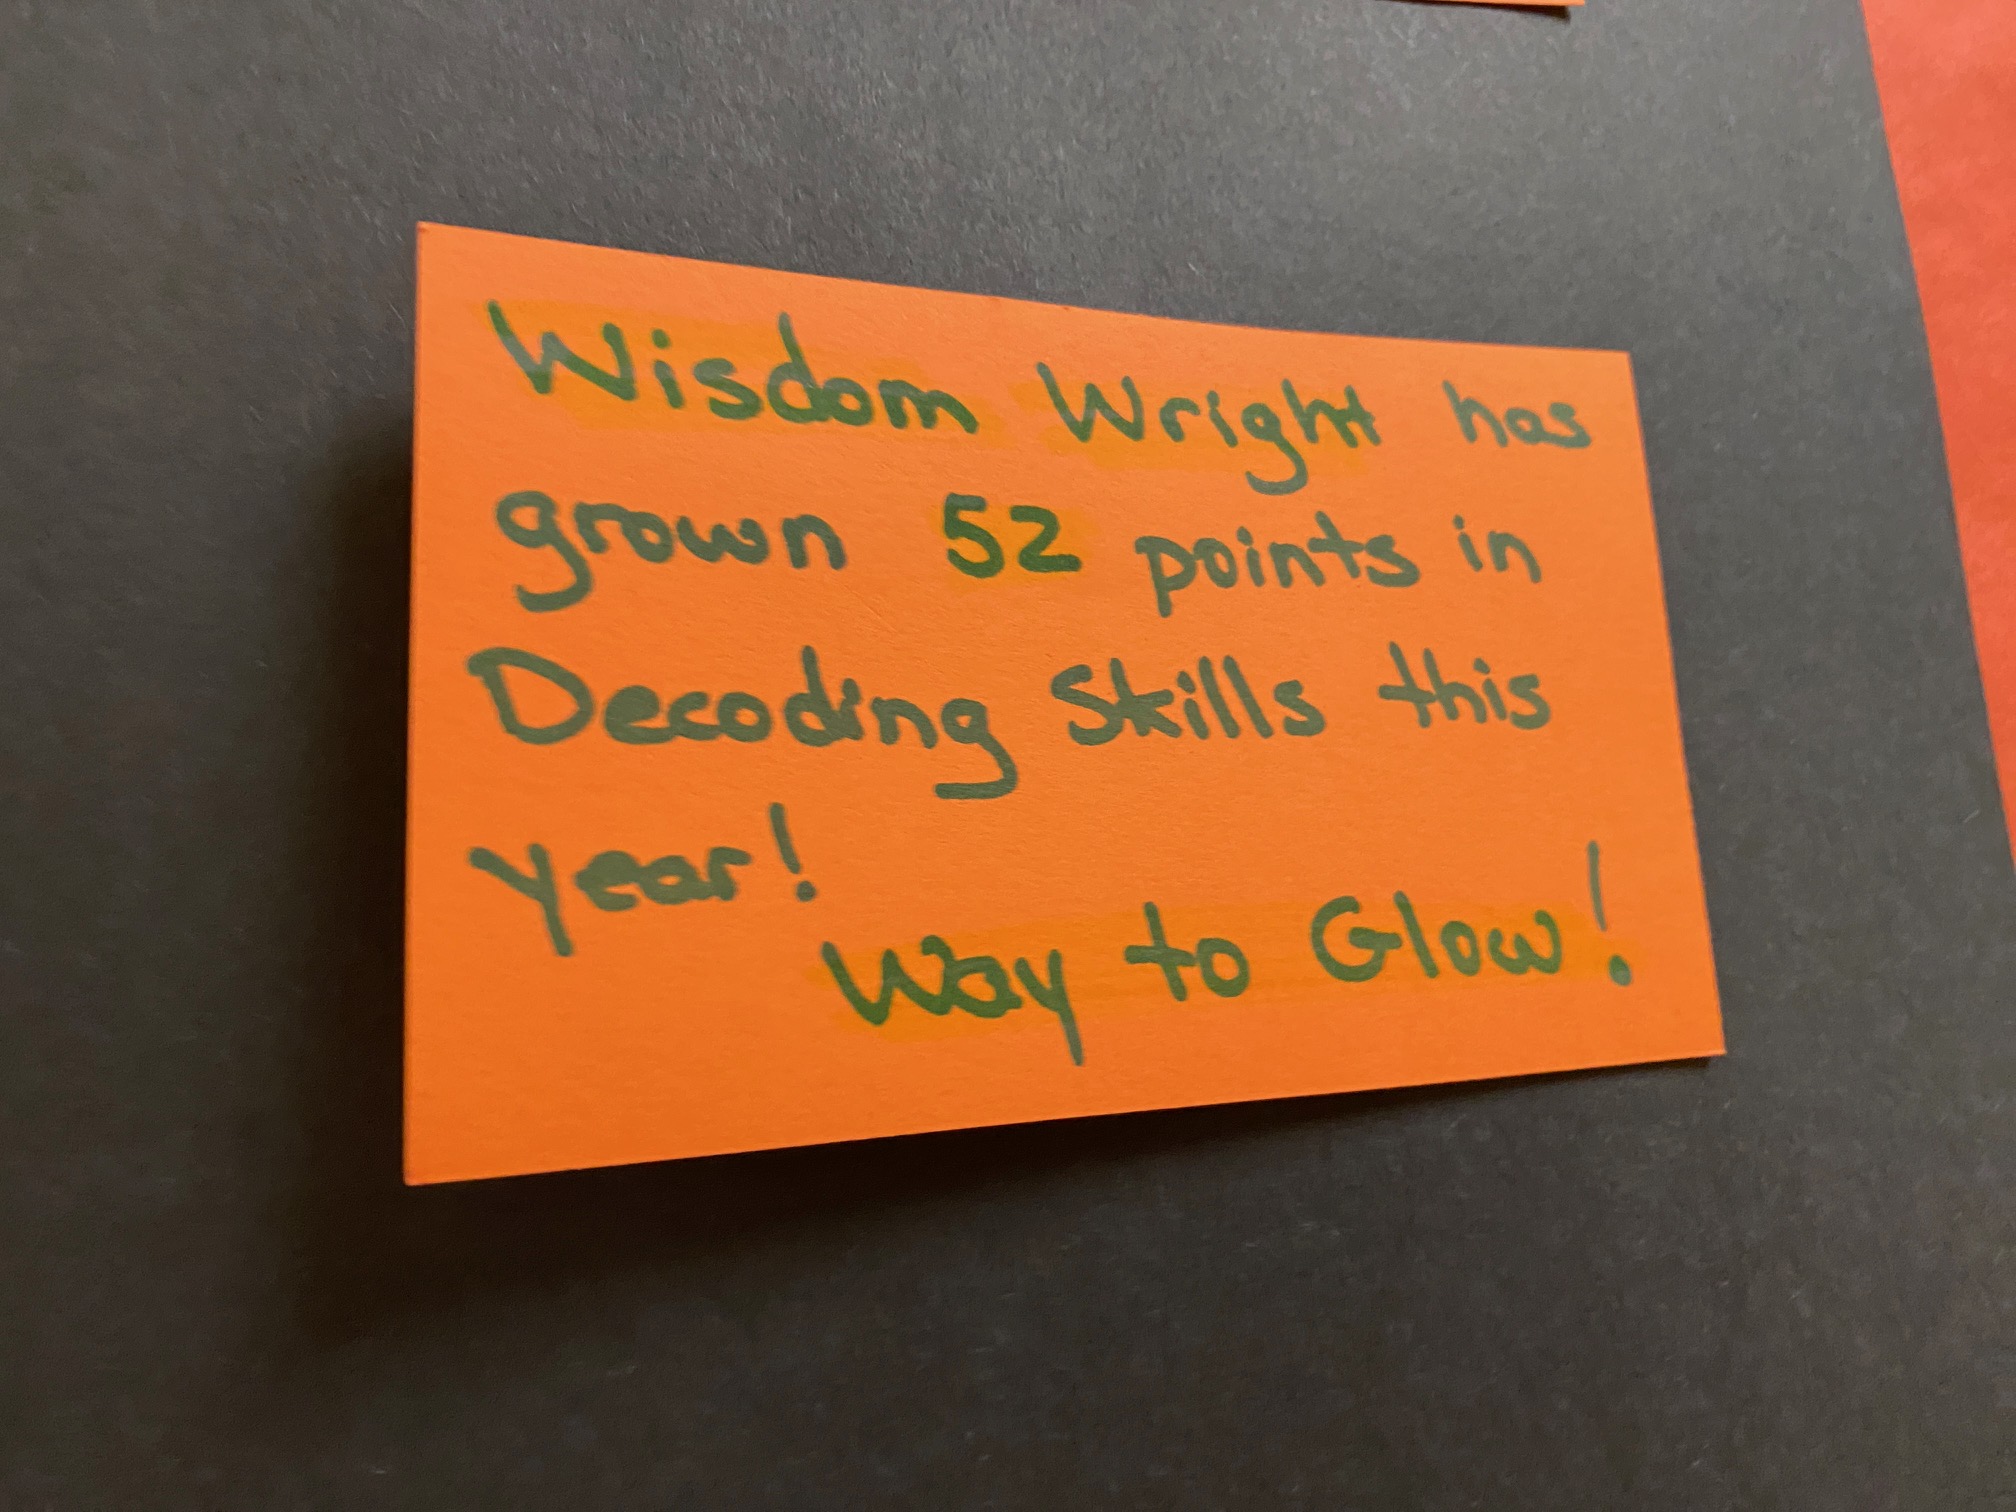 Wisdom Wright has
grown 52 points in
Decoding Skills this
year!
Way to Glow!